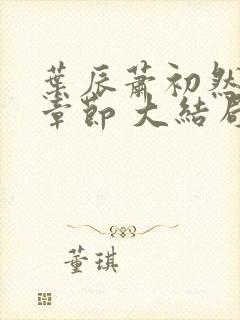 葉辰蕭初然
章節 大結局
董琪